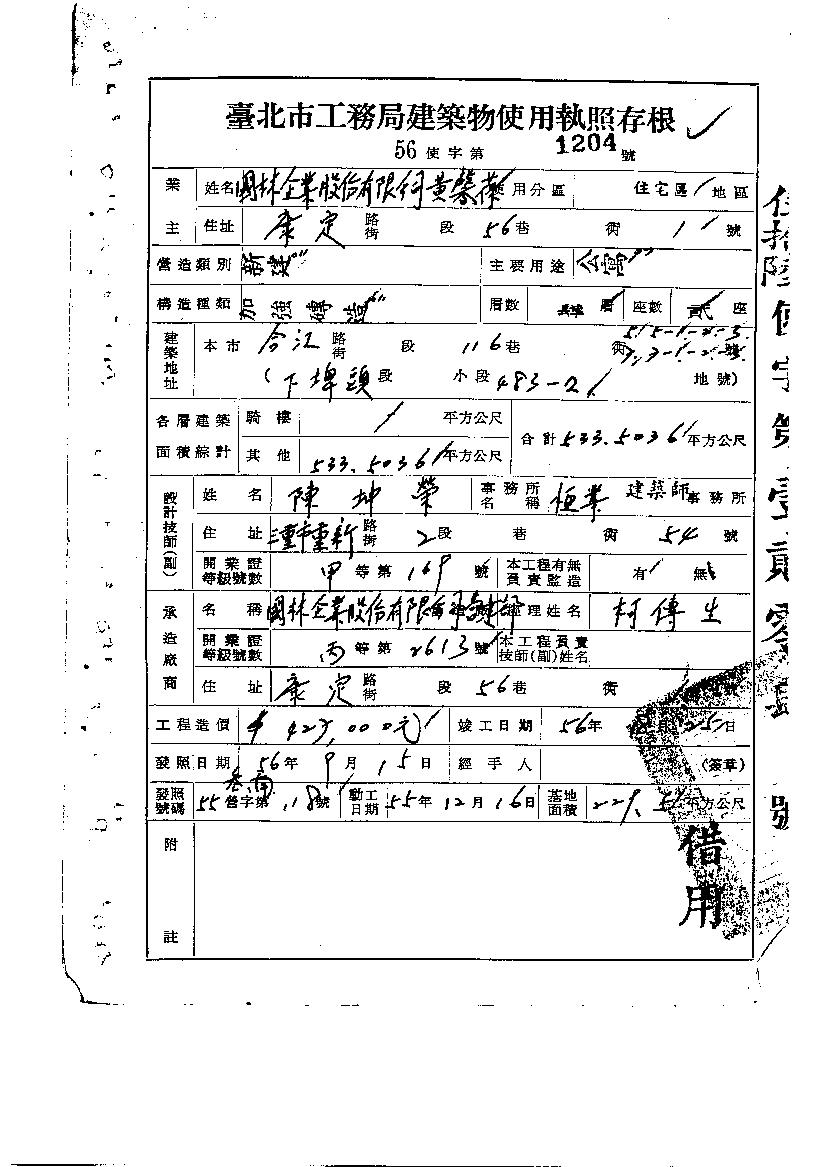 臺北市工務局建築物使用執照存根
56 使字第 1204 號
業主 姓名 國林企業股份有限公司 使用分區 住宅區 地區
住址 康定 路街 段 56 巷 衖 1 號
營造類別 新建 主要用途 公寓
構造種類 加強磚造 層數 層 座數 貳 座
建築地址 本市 合江 路街 段 116 巷 衖
(下埤頭 段 小段 483-2 地號)
各層建築面積綜計 騎樓 / 平方公尺 合計 533.5036 平方公尺
其他 533.5036 平方公尺
設計技師(副) 姓名 陳坤榮 事務所名稱 恒業 建築師 事務所
住址 三重市重新 路街 2 段 巷 衖 54 號
開業證等級號數 甲 等第 169 號 本工程有無負責監造 有 無
承造廠商 名稱 國林企業股份有限公司 經理姓名 柯傳生
開業證等級號數 丙 等第 2613 號 本工程負責技師(副)姓名
住址 康定 路街 段 56 巷 衖 號
工程造價 427,000元 竣工日期 56年 月 25日
發照日期 56年 9月 15日 經手人 (簽章)
發照號碼 55 營字第 118 號 動工日期 55年 12月 16日 基地面積 229. 平方公尺
附註
借用
伍拾陸使字第壹貳零 號